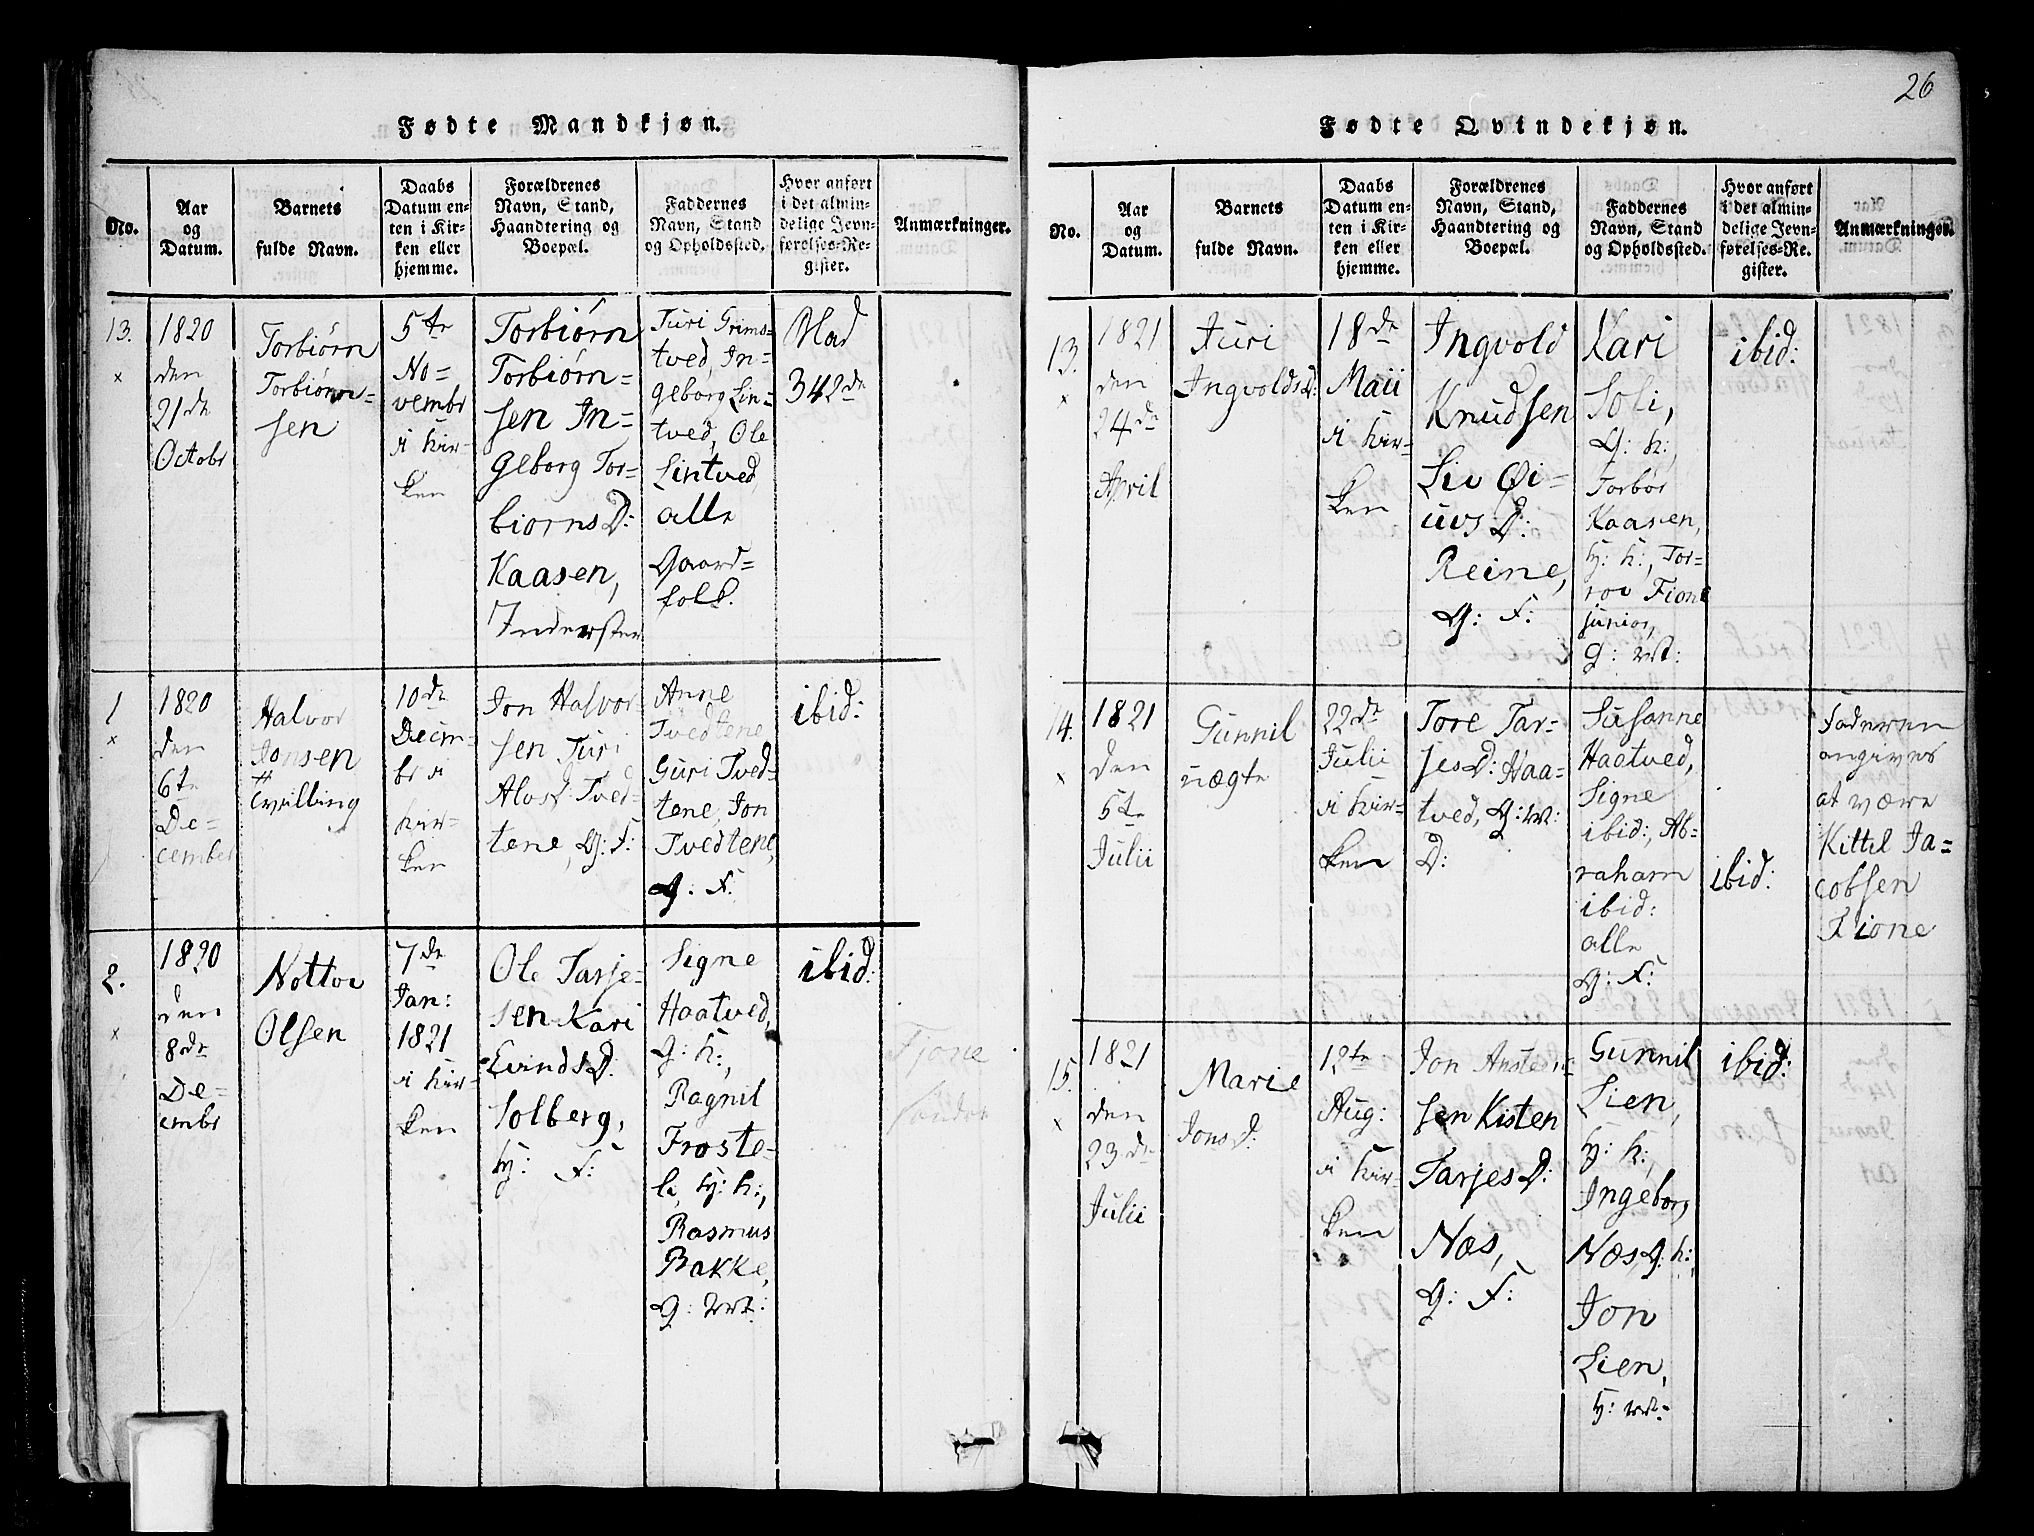 Fødte Mandkjøn.
No.
Aar
og
Datum.
Barnets
fulde Navn.
Daabs
Datum en-
ten i Kir-
ken eller
hjemme.
Forældrenes
Navn, Stand,
Haandtering og
Boepæl.
Faddernes
Navn, Stand
og Opholdssted.
Hvor anført
i det almin-
delige Jevn-
førelses-Re-
gister.
Anmærkninger.
13.
×
1820
den
21de
Octobr
Torbiørn
Torbiørn=
sen
5te
No=
vembr
i Kir-
ken
Torbiørn
Torbiørn=
sen In=
geborg Tor=
biorns D:
Kaasen,
Inderster
Turi Grims=
tved, In=
geborg Lin=
tved, Ole
Lintved,
alle
Gaard=
folk.
Blad
342de
1
×
1820
den
6te
De=
cember
Halvor
Jonsen
#
tvilling
10de
Decm=
br i
Kir-
ken
Jon Halvor
sen Turi
Alvs D: Tved=
tene, G: F:
Anne
Tvedtene
Guri Tved=
tene, Jon
Tvedtene,
G: F:
ibid:
2.
×
1820
den
8de
De=
cembr
Nottov
Olsen
7de
Jan:
1821
i Kir-
ken
Ole Tarje=
sen Kari
Evinds D:
Solberg,
H: F:
Signe
Haatved,
G: K:,
Ragnil
Froste=
li, H: K:,
Rasmus
Bakke,
G: M:
ibid:
Fione
26
Fødte Qvindekjøn.
No.
Aar
og
Datum.
Barnets
fulde Navn.
Daabs
Datum en-
ten i Kir-
ken eller
hjemme.
Forældrenes
Navn, Stand,
Haandtering og
Boepæl.
Faddernes
Navn, Stand
og Opholdssted.
Hvor anført
i det almin-
delige Jevn-
førelses-Re-
gister.
Anmærkninger.
13.
×
1821
den
24de
April
Turi
Ingvolds D:
18de
Maii
i Kir-
ken
Ingvold
Knudsen
Liv Øi=
uvs D:
Reine,
G: F:
Kari
Soli,
G: K:,
Torbør
Kaasen,
H: K:, Tor=
rov Fione
junior,
G: M:
ibid:
14.
×
1821
den
5te
Julii
Gunnil
uægte
22de
Julii
i Kir-
ken
Tore Tar=
jes D: Haa=
tved, G: M:
D:
Susanne
Haatved,
Signe
ibid:, Ab=
raham
ibid:
alle
G: F:
ibid:
Faderen
angives
at være
Kittil Ja=
cobsen
Fione
15.
×
1821
den
23de
Julii
Marie
Jons D:
12te
Aug:
i Kir-
ken
Jon Austen=
sen Kisten
Tarjes D:
Næs,
G: F:
Gunnil
Lien,
H: K:,
Ingeborg
Næs, G: K:,
Jon
Lien,
H: M:
ibid: